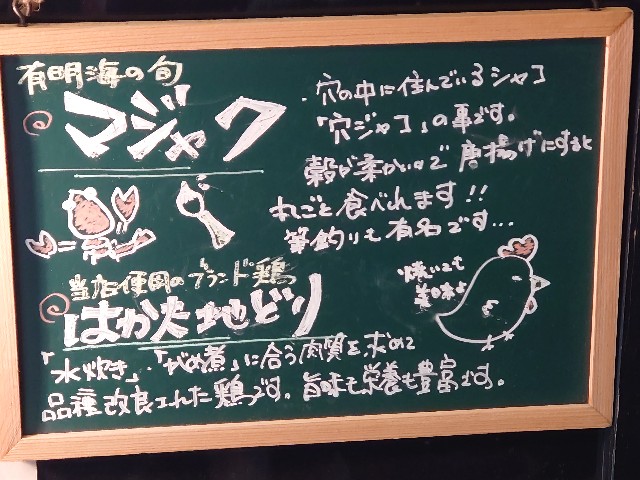 有明海の旬
マジャク
穴の中に住んでいるシャコ
「穴ジャコ」の事です。
殻が柔かいので唐揚げにすると
丸ごと食べれます!!
筆釣りも有名です…
当店使用のブランド鶏
はかた地どり
焼いても
美味よ
「水炊き」「がめ煮」に合う肉質を求めて
品種改良された鶏です。旨味も栄養も豊富です。